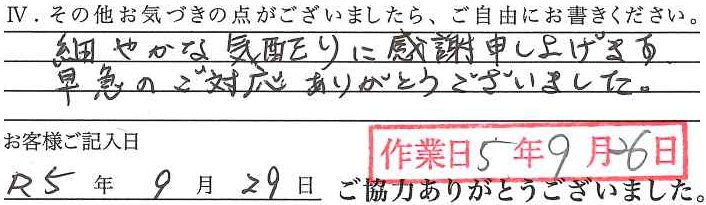 Ⅳ．その他お気づきの点がございましたら、ご自由にお書きください。
細やかな気配りに感謝申し上げます
早急のご対応ありがとうございました。
お客様ご記入日
作業日5年9月26日
R5年9月29日 ご協力ありがとうございました。